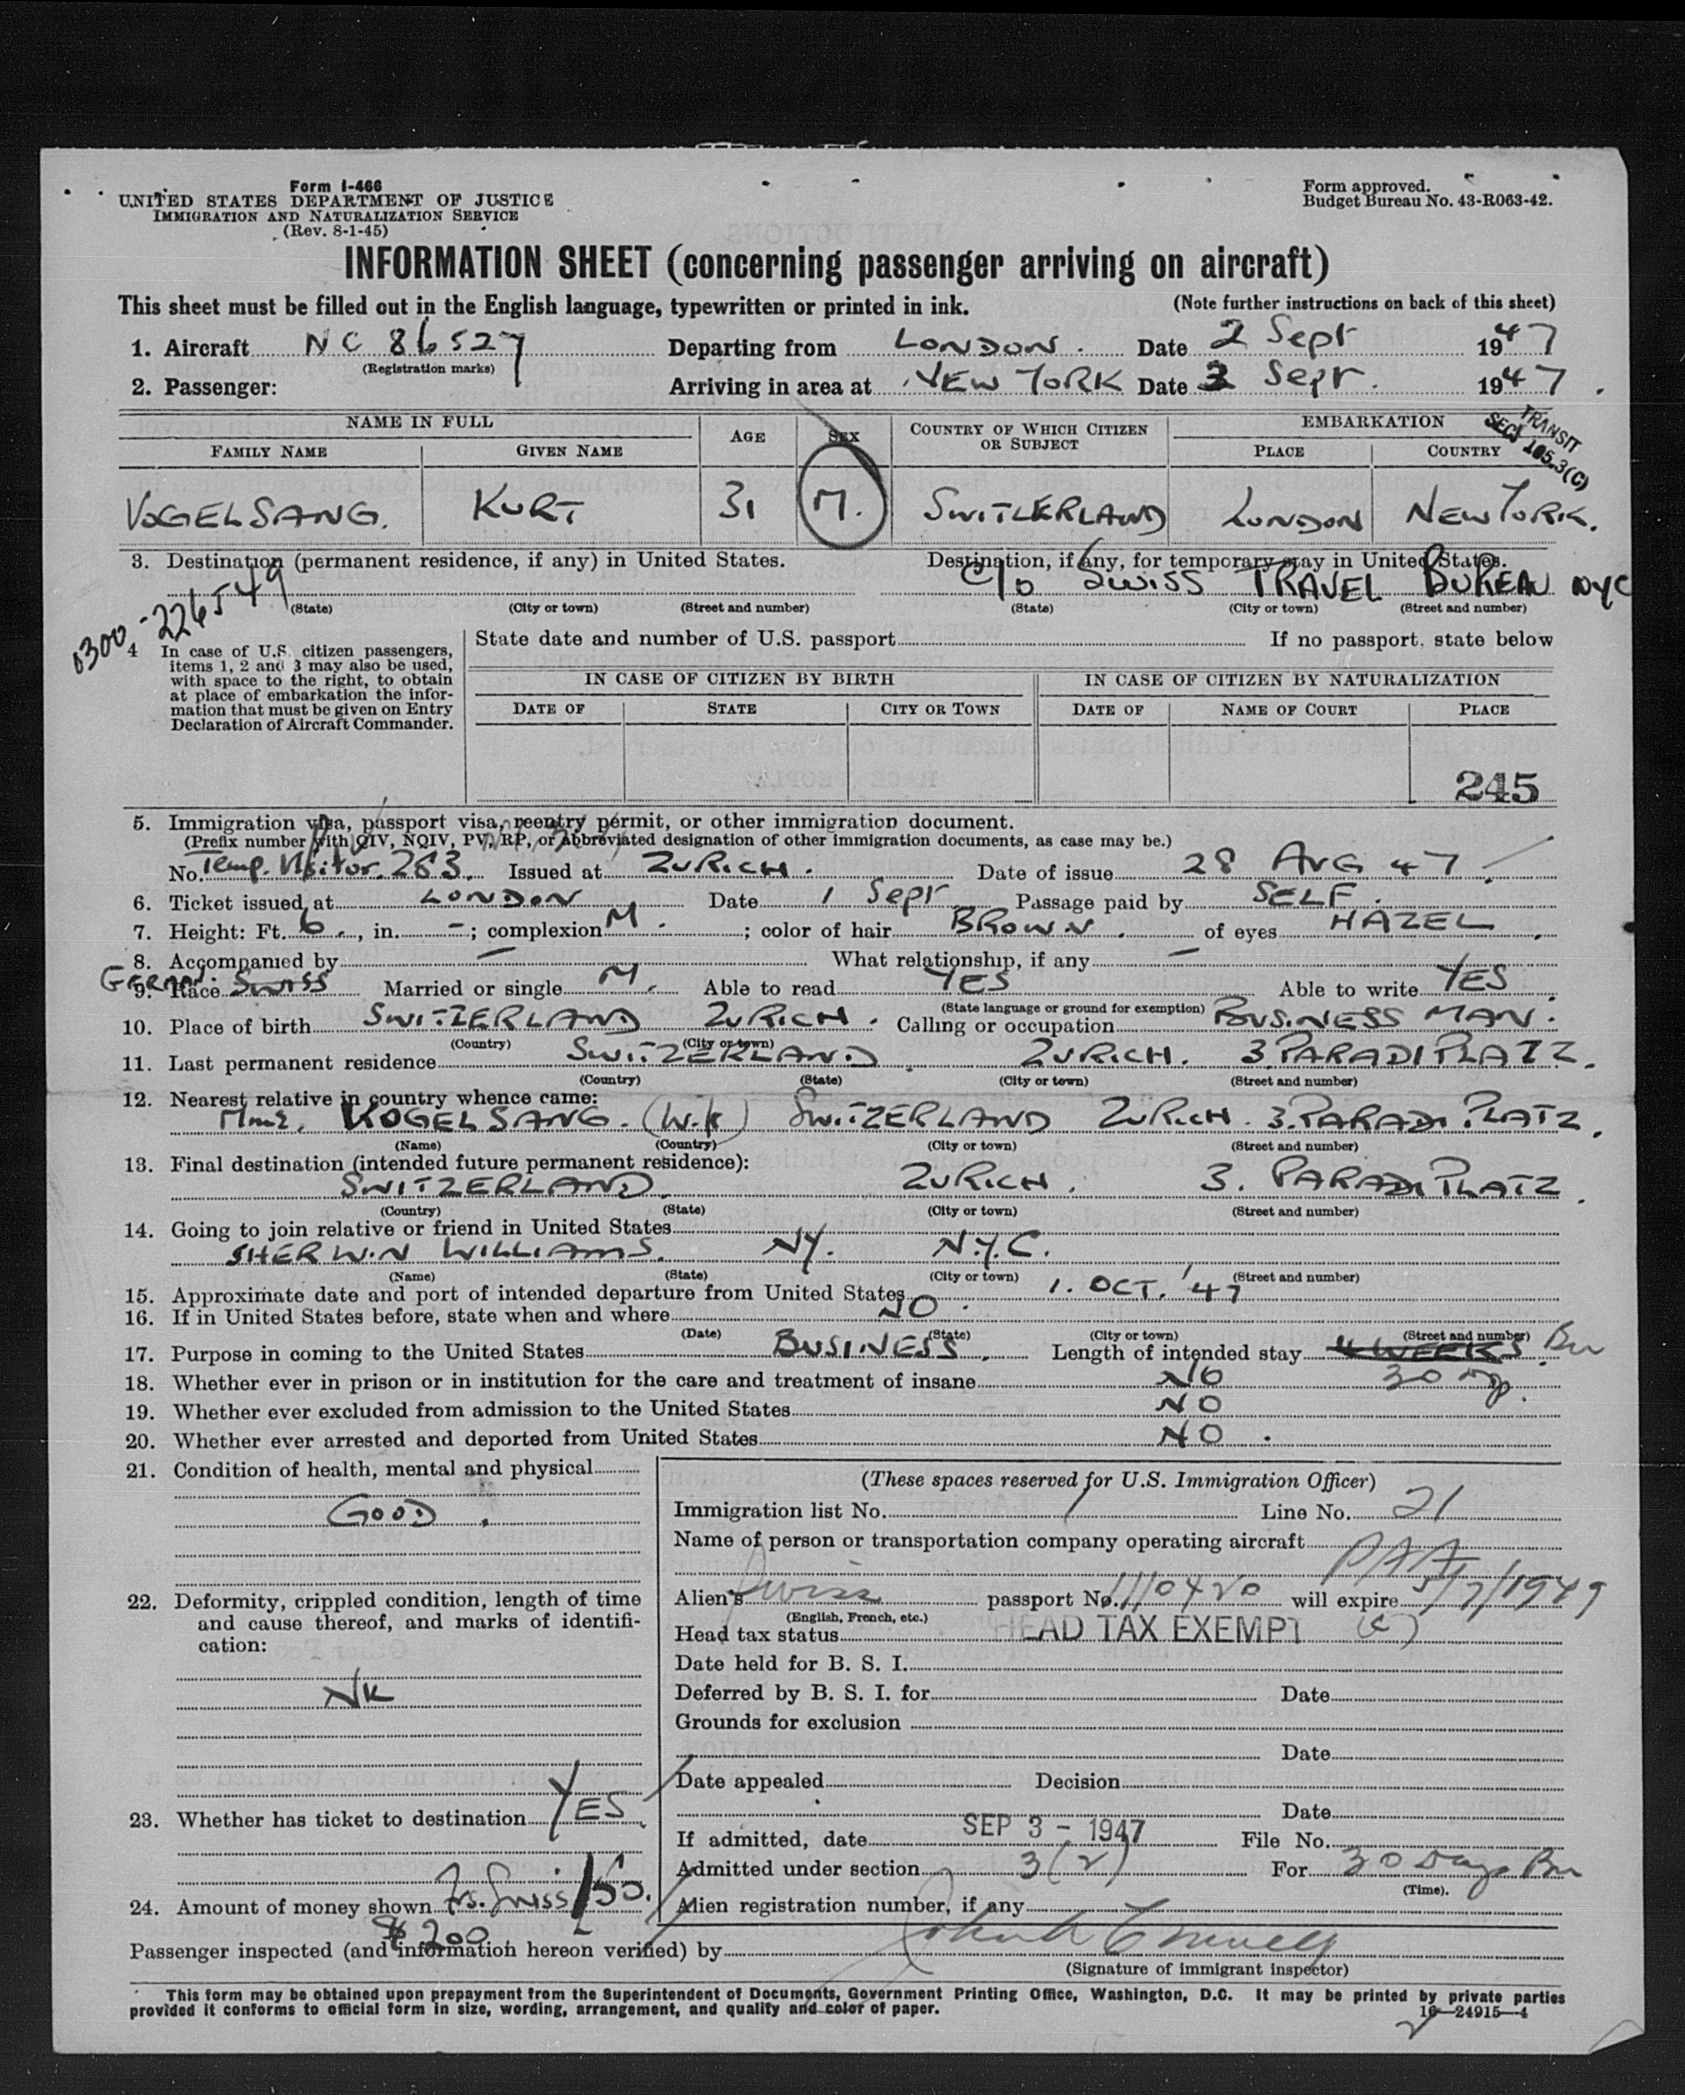 Form I-466
UNITED STATES DEPARTMENT OF JUSTICE
IMMIGRATION AND NATURALIZATION SERVICE
(Rev. 8-1-45)
Form approved.
Budget Bureau No. 43-R063-42.
INFORMATION SHEET (concerning passenger arriving on aircraft)
This sheet must be filled out in the English language, typewritten or printed in ink. (Note further instructions on back of this sheet)
1. Aircraft NC 86527 Departing from LONDON. Date 2 Sept 1947
(Registration marks)
2. Passenger: Arriving in area at NEW YORK Date 3 Sept. 1947
TRANSIT
SEC. 105.3(C)
NAME IN FULL AGE SEX COUNTRY OF WHICH CITIZEN OR SUBJECT EMBARKATION
FAMILY NAME GIVEN NAME PLACE COUNTRY
VOGELSANG. KURT 31 M. SWITZERLAND LONDON NEW YORK.
3. Destination (permanent residence, if any) in United States. Destination, if any, for temporary stay in United States.
c/o SWISS TRAVEL BUREAU NYC
(State) (City or town) (Street and number) (State) (City or town) (Street and number)
0300-226549
4 In case of U.S. citizen passengers, items 1, 2 and 3 may also be used, with space to the right, to obtain at place of embarkation the information that must be given on Entry Declaration of Aircraft Commander.
State date and number of U.S. passport If no passport, state below
IN CASE OF CITIZEN BY BIRTH IN CASE OF CITIZEN BY NATURALIZATION
DATE OF STATE CITY OR TOWN DATE OF NAME OF COURT PLACE
245
5. Immigration visa, passport visa, reentry permit, or other immigration document.
(Prefix number with QIV, NQIV, PV, RP, or abbreviated designation of other immigration documents, as case may be.)
No. Temp. Visitor. 283. Issued at ZURICH. Date of issue 28 AUG 47.
6. Ticket issued at LONDON Date 1 Sept Passage paid by SELF.
7. Height: Ft. 6, in. -; complexion M.; color of hair BROWN. of eyes HAZEL.
8. Accompanied by — What relationship, if any —
9. Race German Swiss Married or single M. Able to read YES Able to write YES.
(State language or ground for exemption)
10. Place of birth SWITZERLAND ZURICH. Calling or occupation BUSINESS MAN.
(Country) (City or town)
11. Last permanent residence SWITZERLAND. ZURICH. 3 PARADIPLATZ.
(Country) (State) (City or town) (Street and number)
12. Nearest relative in country whence came:
Mme. VOGELSANG. (Wife) SWITZERLAND ZURICH. 3. PARADIPLATZ.
(Name) (Country) (City or town) (Street and number)
13. Final destination (intended future permanent residence):
SWITZERLAND. ZURICH. 3. PARADIPLATZ.
(Country) (State) (City or town) (Street and number)
14. Going to join relative or friend in United States
SHERWIN WILLIAMS. NY. N.Y.C.
(Name) (State) (City or town) (Street and number)
15. Approximate date and port of intended departure from United States 1. OCT. '47
16. If in United States before, state when and where NO.
(Date) (State) (City or town) (Street and number)
17. Purpose in coming to the United States BUSINESS. Length of intended stay 4 WEEKS. Bu
30 Dys.
18. Whether ever in prison or in institution for the care and treatment of insane NO
19. Whether ever excluded from admission to the United States NO
20. Whether ever arrested and deported from United States NO.
21. Condition of health, mental and physical
GOOD.
22. Deformity, crippled condition, length of time and cause thereof, and marks of identification:
NK
23. Whether has ticket to destination YES.
24. Amount of money shown Frs. Swiss 150.
$200
(These spaces reserved for U.S. Immigration Officer)
Immigration list No. 1 Line No. 21
Name of person or transportation company operating aircraft PAA
Alien's Swiss passport No. 1110420 will expire 5/7/1949
(English, French, etc.)
Head tax status HEAD TAX EXEMPT (c)
Date held for B. S. I.
Deferred by B. S. I. for Date
Grounds for exclusion
Date
Date appealed Decision
Date
If admitted, date SEP 3 - 1947 File No.
Admitted under section 3(2) For 30 Days Bu
(Time).
Alien registration number, if any
Passenger inspected (and information hereon verified) by
(Signature of immigrant inspector)
This form may be obtained upon prepayment from the Superintendent of Documents, Government Printing Office, Washington, D.C. It may be printed by private parties
provided it conforms to official form in size, wording, arrangement, and quality and color of paper. 16—24915-4